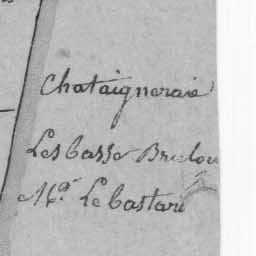 Chataigneraie
Les basse Brulou
Md. Le bastard